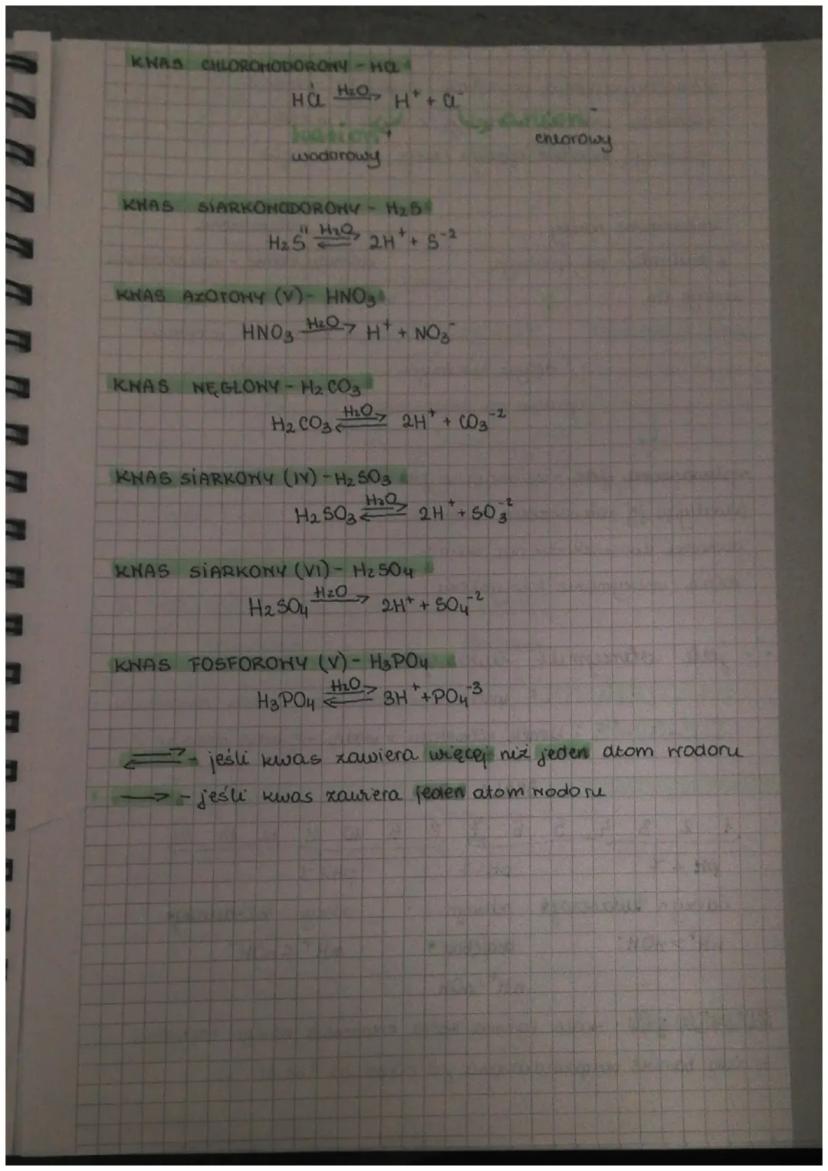 KWAS CHLOROWODOROWY - HCl
HCl H2O→ H⁺ + Cl⁻
kation⁺ anion⁻
wodorowy chlorowy
KWAS SIARKOWODOROWY - H2S
H2S^II H2O⇌ 2H⁺ + S⁻²
KWAS AZOTOWY (V) - HNO3
HNO3 H2O→ H⁺ + NO3⁻
KWAS WĘGLOWY - H2CO3
H2CO3 H2O⇌ 2H⁺ + CO3⁻²
KWAS SIARKOWY (IV) - H2SO3
H2SO3 H2O⇌ 2H⁺ + SO3⁻²
KWAS SIARKOWY (VI) - H2SO4
H2SO4 H2O→ 2H⁺ + SO4⁻²
KWAS FOSFOROWY (V) - H3PO4
H3PO4 H2O⇌ 3H⁺ + PO4⁻³
⇌ - jeśli kwas zawiera więcej niż jeden atom wodoru
→ - jeśli kwas zawiera jeden atom wodoru